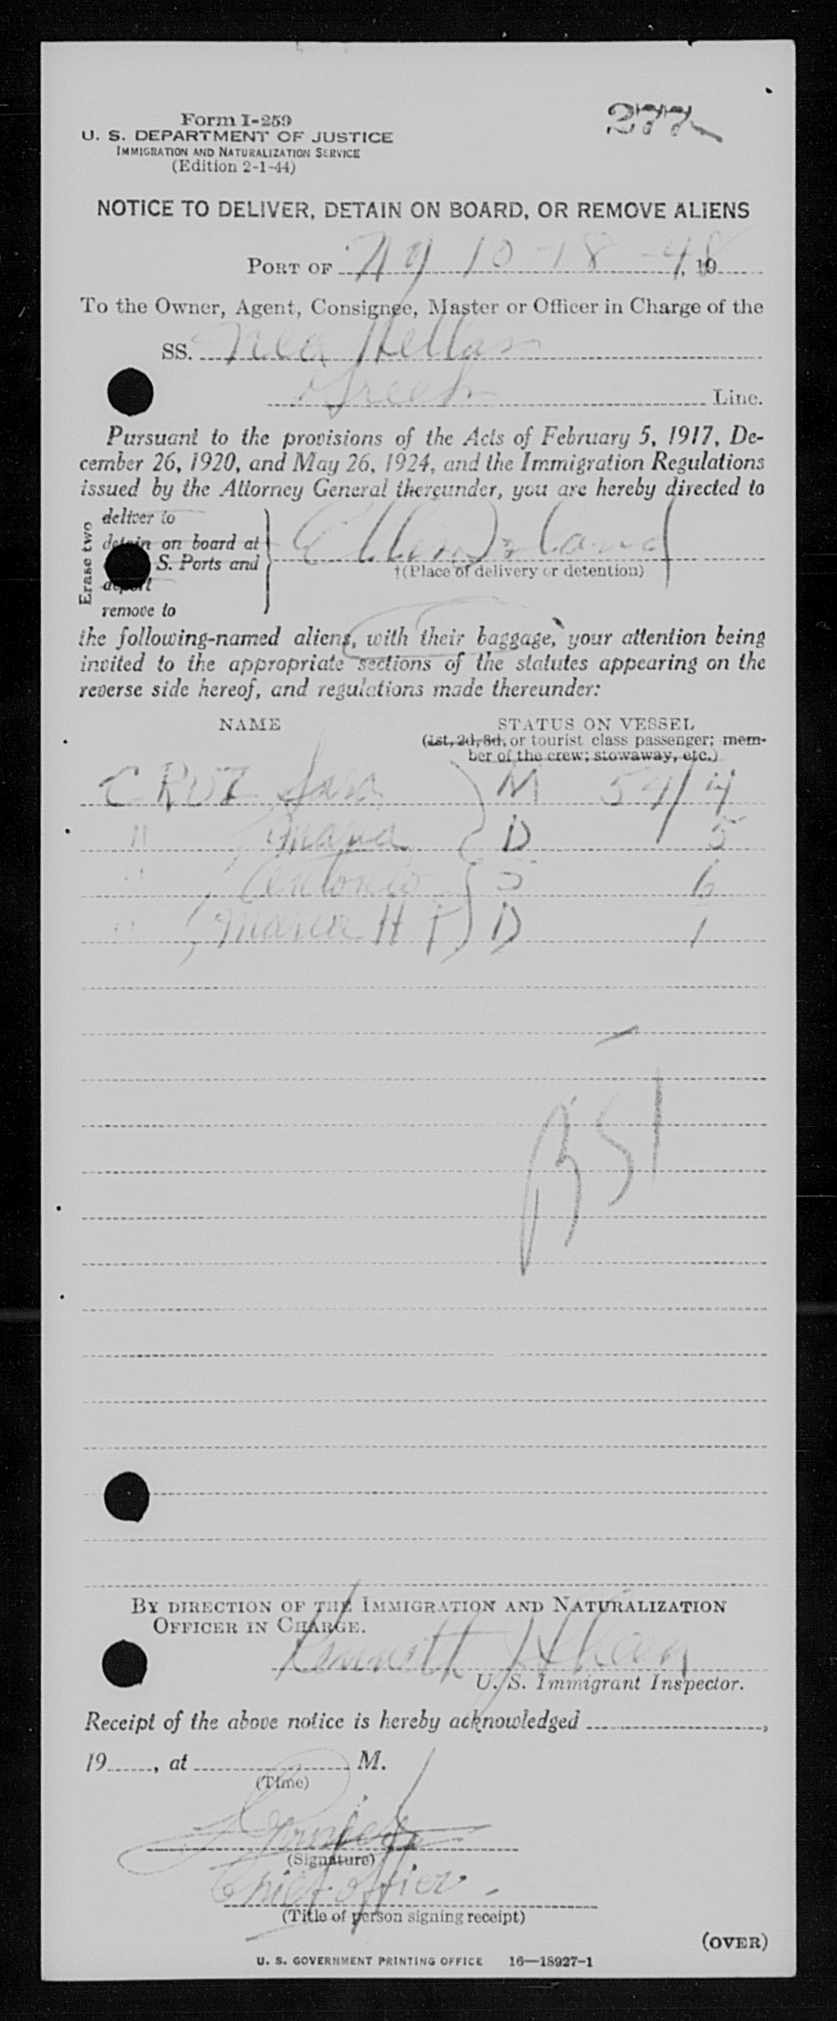 277
Form I-259
U. S. DEPARTMENT OF JUSTICE
IMMIGRATION AND NATURALIZATION SERVICE
(Edition 2-1-44)
NOTICE TO DELIVER, DETAIN ON BOARD, OR REMOVE ALIENS
PORT OF NY 10-18-48, 19
To the Owner, Agent, Consignee, Master or Officer in Charge of the
SS. Nea Hellas
Greek Line.
Pursuant to the provisions of the Acts of February 5, 1917, De-
cember 26, 1920, and May 26, 1924, and the Immigration Regulations
issued by the Attorney General thereunder, you are hereby directed to
Erase two
deliver to
detain on board at
S. Ports and
deport
remove to
Ellis Island
†(Place of delivery or detention)
the following-named aliens, with their baggage, your attention being
invited to the appropriate sections of the statutes appearing on the
reverse side hereof, and regulations made thereunder:
NAME STATUS ON VESSEL
(1st, 2d, 3d, or tourist class passenger; mem-
ber of the crew; stowaway, etc.)
CRUZ, Sara M 54/4
" , Maria D 5
" , Antonio S 6
" , Maria H T D 1
BSI
BY DIRECTION OF THE IMMIGRATION AND NATURALIZATION
OFFICER IN CHARGE.
Kenneth J
U. S. Immigrant Inspector.
Receipt of the above notice is hereby acknowledged ,
19 , at M.
(Time)
(Signature)
Chief officer
(Title of person signing receipt)
(OVER)
U. S. GOVERNMENT PRINTING OFFICE 16—18927-1